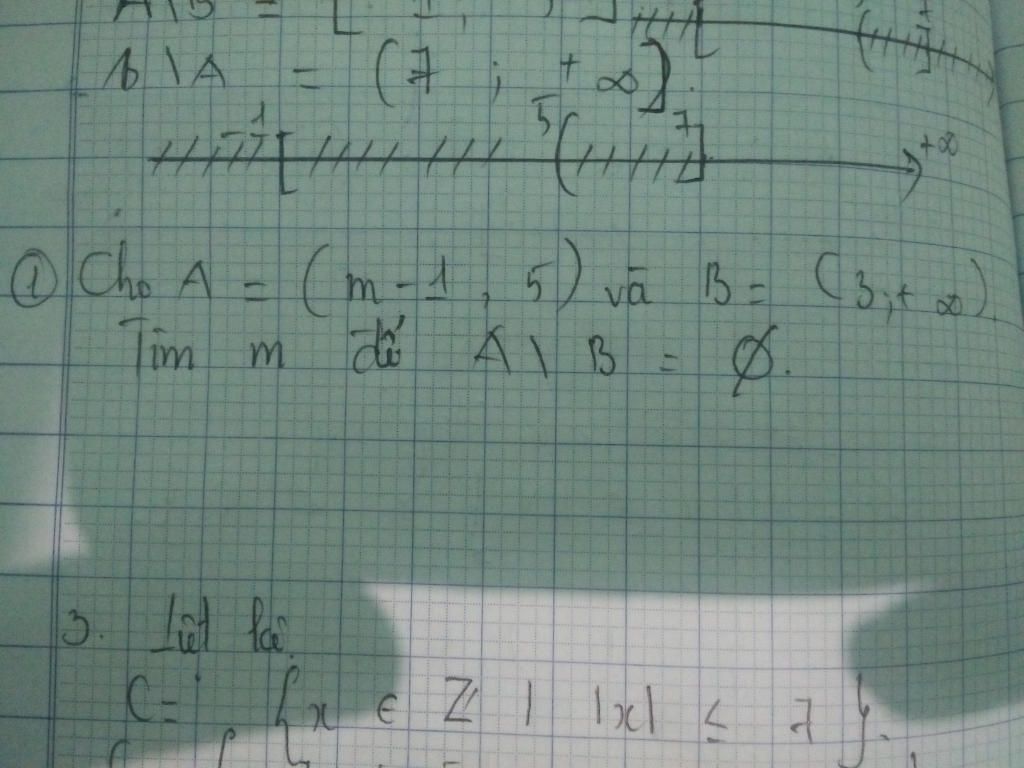 A \ B = [
B \ A = (7 ; +∞).
-1 [ 5 ( 7 ] +∞
① Cho A = (m - 1, 5) và B = (3; +∞).
Tìm m để A \ B = ∅.
3. Liệt kê.
C = {x ∈ Z | |x| ≤ 7}.